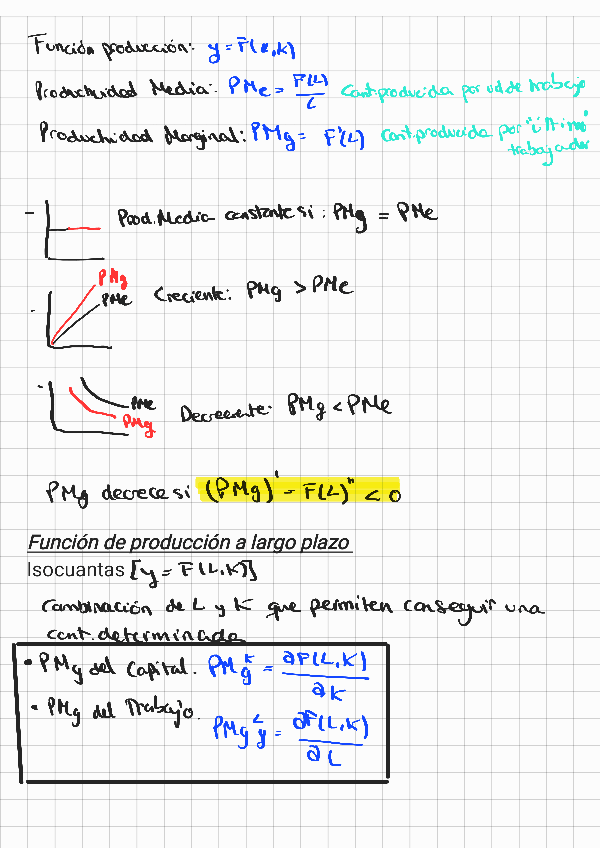 Función producción: y = F(L,K)
Productividad Media: PMe = F(L)/L Cant.producida por ud de trabajo
Productividad Marginal: PMg = F'(L) Cant.producida por "último" trabajador
- Prod.Media constante si: PMg = PMe
PMg
PMe
- Creciente: PMg > PMe
- PMe
PMg
Decreciente: PMg < PMe
PMg decrece si (PMg)' = F(L)'' < 0
Función de producción a largo plazo
Isocuantas [y = F(L,K)]
Combinación de L y K que permiten conseguir una
cant.determinada
• PMg del Capital. PMg^K = ∂F(L,K)/∂K
• PMg del Trabajo. PMg^L y = ∂F(L,K)/∂L